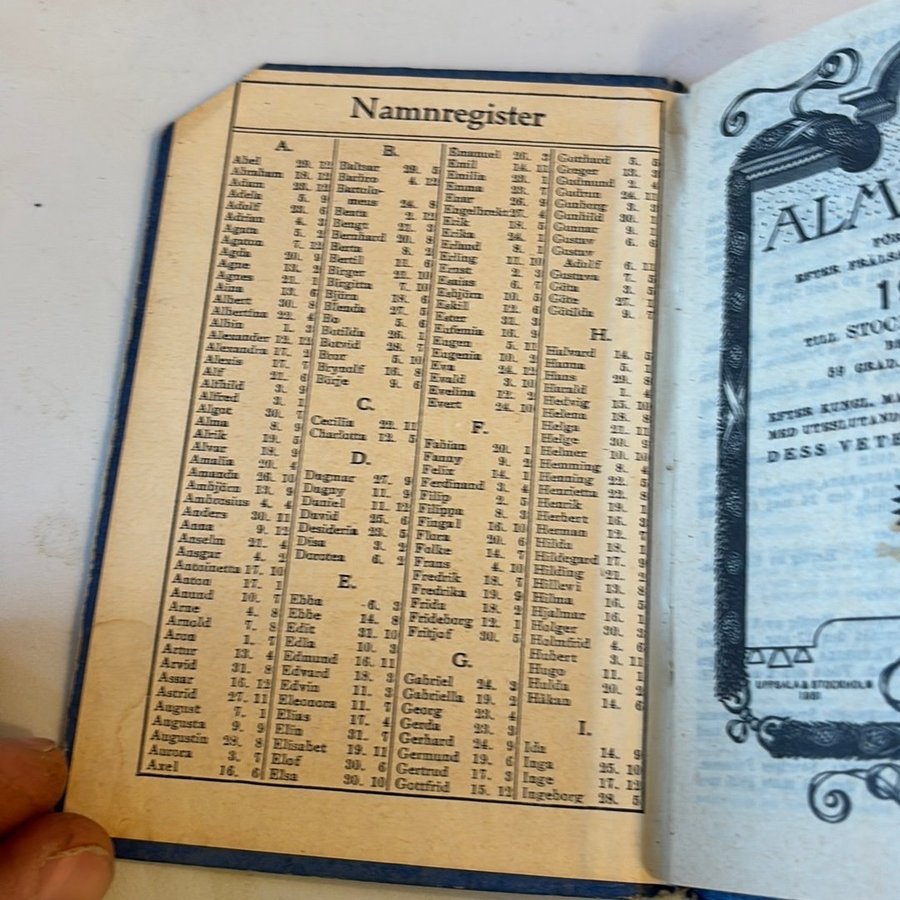 Namnregister
A.
Abel 29. 12
Abraham 18. 12
Adam 23. 12
Adela 5. 9
Adolf 23. 6
Adrian 4. 3
Agata 5. 2
Agaton 7. 12
Agda 20. 9
Agne 13. 2
Agnes 21. 1
Aina 13. 6
Albert 30. 8
Albertina 22. 4
Albin 1. 3
Alexander 12. 12
Alexandra 17. 2
Alexis 17. 7
Alf 21. 6
Alfhild 3. 9
Alfred 3. 1
Algot 30. 7
Alma 8. 9
Alrik 19. 5
Alvar 18. 9
Amalia 20. 4
Amanda 26. 10
Ambjörn 13. 9
Ambrosius 4. 4
Anders 30. 11
Anna 9. 12
Anselm 21. 4
Ansgar 4. 2
Antoinetta 17. 10
Anton 17. 1
Anund 10. 7
Arne 4. 8
Arnold 7. 8
Aron 1. 7
Artur 13. 4
Arvid 31. 8
Assar 16. 12
Astrid 27. 11
August 7. 1
Augusta 9. 9
Augustin 28. 8
Aurora 3. 7
Axel 16. 6
B.
Baltsar 29. 5
Barbro 4. 12
Bartolo-
meus 24. 8
Beata 2. 12
Bengt 21. 3
Bernhard 20. 8
Berta 8. 2
Bertil 11. 6
Birger 21. 10
Birgitta 7. 10
Björn 18. 6
Blenda 27. 5
Bo 5. 6
Botilda 26. 1
Botvid 28. 7
Bror 5. 10
Brynolf 16. 8
Börje 9. 6
C.
Cecilia 22. 11
Charlotta 12. 5
D.
Dagmar 27. 9
Dagny 11. 9
Daniel 11. 12
David 25. 6
Desideria 23. 5
Disa 3. 2
Dorotea 6. 2
E.
Ebba 6. 3
Ebbe 14. 8
Edit 31. 10
Edla 10. 3
Edmund 16. 11
Edvard 18. 3
Edvin 11. 3
Eleonora 11. 7
Elias 17. 4
Elin 31. 7
Elisabet 19. 11
Elof 30. 6
Elsa 30. 10
Emanuel 26. 3
Emil 14. 11
Emilia 23. 1
Emma 23. 7
Enar 26. 9
Engelbrekt 27. 4
Erik 18. 5
Erika 24. 1
Erland 8. 1
Erling 11. 10
Ernst 2. 3
Esaias 6. 7
Esbjörn 10. 5
Eskil 12. 6
Ester 31. 3
Eufemia 16. 9
Eugen 5. 11
Eugenia 10. 2
Eva 24. 12
Evald 3. 10
Evelina 12. 2
Evert 24. 10
F.
Fabian 20. 1
Fanny 9. 2
Felix 14. 1
Ferdinand 3. 4
Filip 2. 5
Filippa 8. 3
Fingal 16. 10
Flora 20. 6
Folke 14. 7
Frans 4. 10
Fredrik 18. 7
Fredrika 19. 9
Frida 18. 2
Frideborg 12. 1
Fritjof 30. 5
G.
Gabriel 24. 3
Gabriella 19. 2
Georg 23. 4
Gerda 23. 3
Gerhard 24. 9
Germund 19. 6
Gertrud 17. 3
Gottfrid 15. 12
Gotthard 5. 5
Greger 12. 3
Gudmund 2. 4
Gudrun 24. 11
Gunborg 3. 3
Gunhild 30. 1
Gunnar 9. 1
Gustav 6. 6
Gustav
Adolf 6. 11
Gustava 7. 5
Göta 3. 5
Göte 27. 1
Götilda 9. 7
H.
Halvard 14. 5
Hanna 5. 1
Hans 29. 8
Harald 1. 4
Hedvig 15. 10
Helena 18. 8
Helga 21. 11
Helge 30. 9
Helmer 10. 10
Hemming 8. 4
Henning 22. 5
Henrietta 22. 8
Henrik 19. 1
Herbert 16. 3
Herman 12. 7
Hilda 18. 1
Hildegard 17. 9
Hilding 21. 2
Hillevi 13. 8
Hilma 16. 5
Hjalmar 16. 1
Holger 30. 3
Holmfrid 4. 6
Hubert 3. 11
Hugo 11. 1
Hulda 20. 2
Håkan 14. 6
I.
Ida 14. 9
Inga 25. 10
Inge 17. 12
Ingeborg 28. 5
ALM
FÖR
EFTER FRÄLS
19
TILL STOC
59 GRAD.
EFTER KUNGL. MA
MED UTESLUTAND
DESS VETE
UPPSALA & STOCKHOLM